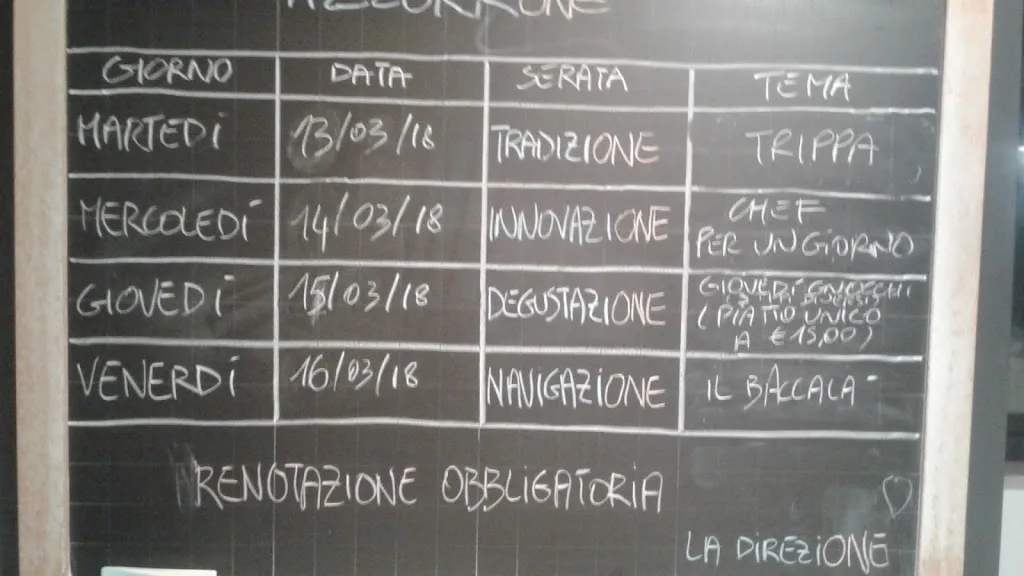 GIORNO DATA SERATA TEMA
MARTEDÌ 13/03/18 TRADIZIONE TRIPPA
MERCOLEDÌ 14/03/18 INNOVAZIONE CHEF
PER UN GIORNO
GIOVEDÌ 15/03/18 DEGUSTAZIONE GIOVEDÌ GNOCCHI
(PIATTO UNICO
A €15,00)
VENERDÌ 16/03/18 NAVIGAZIONE IL BACCALÀ
PRENOTAZIONE OBBLIGATORIA
LA DIREZIONE